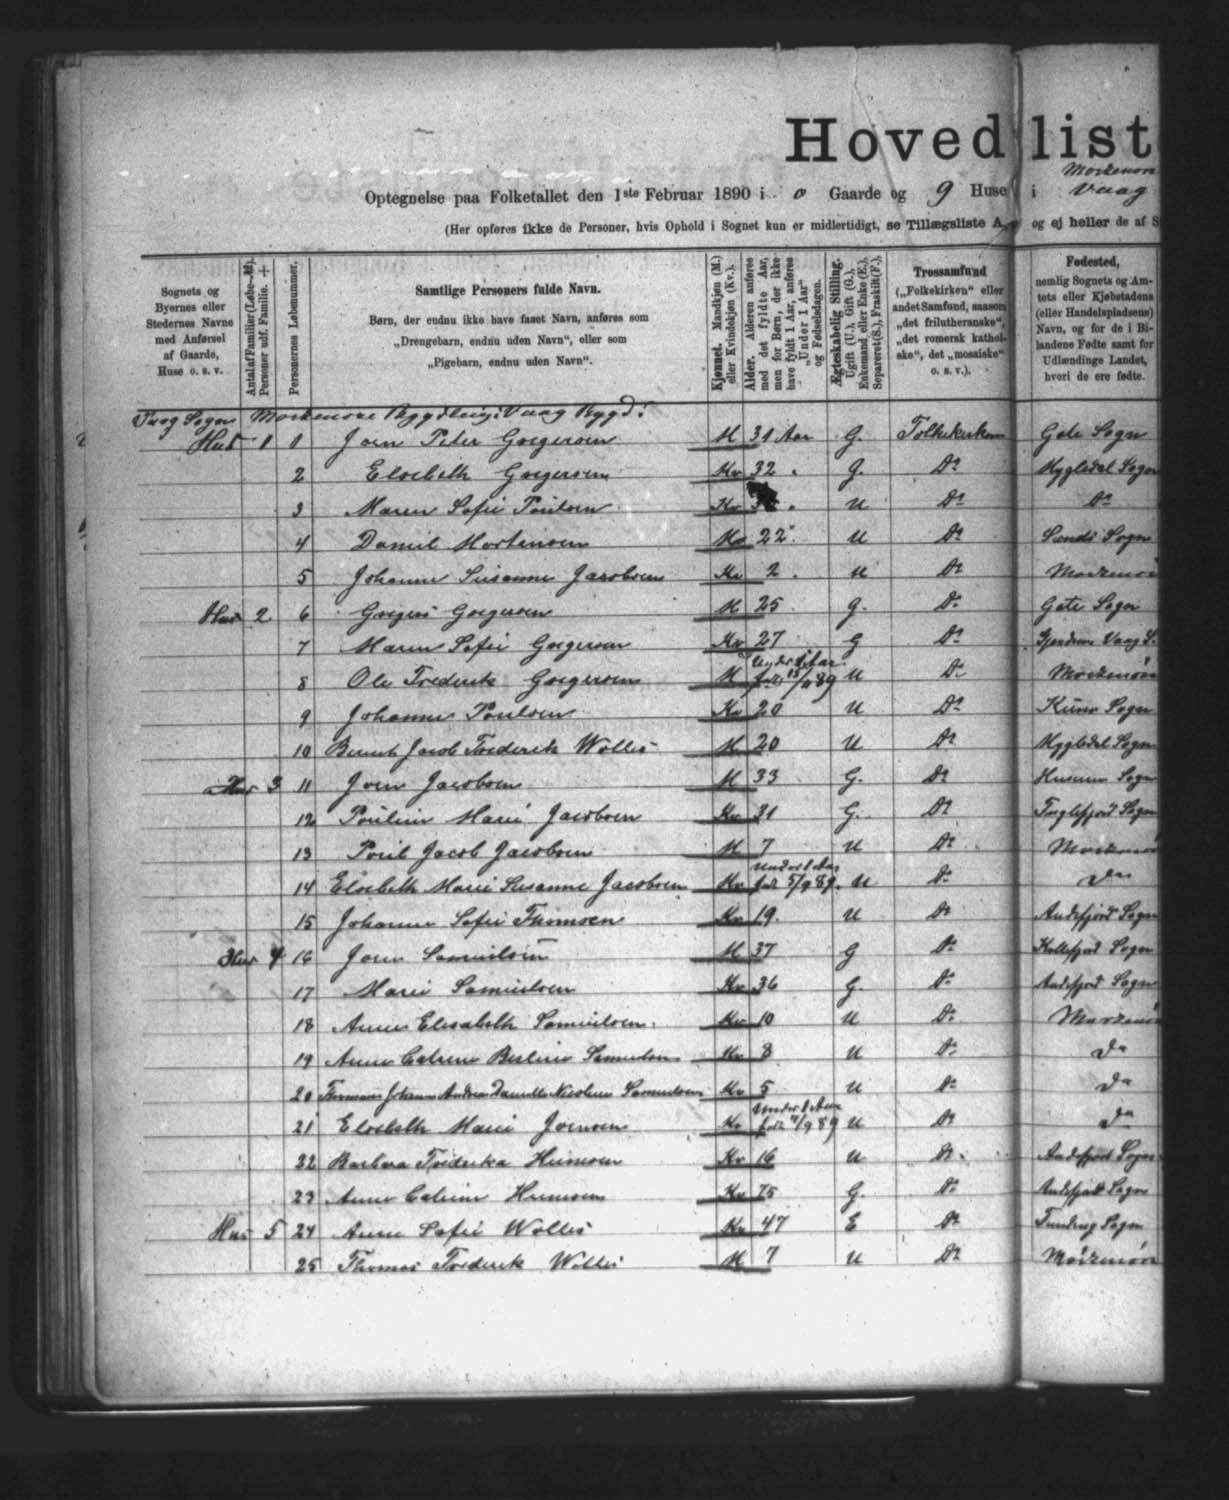 Hovedlist
Optegnelse paa Folketallet den 1ste Februar 1890 i 0 Gaarde og 9 Huse i Vaag
(Her opføres ikke de Personer, hvis Ophold i Sognet kun er midlertidigt, se Tillægsliste A, og ej heller de af S
Sognets og Byernes eller Stedernes Navne med Anførsel af Gaarde, Huse o. s. v.
Antal af Familier (Løbe-№). Personer udf. Familie. +
Personernes Løbenummer.
Samtlige Personers fulde Navn.
Børn, der endnu ikke have faaet Navn, anføres som
„Drengebarn, endnu uden Navn“, eller som
„Pigebarn, endnu uden Navn“.
Kjønnet. Mandkjøn (M.) eller Kvindekjøn (Kv.).
Alder. Alderen anføres med det fyldte Aar, men for Børn, der ikke have fyldt 1 Aar, anføres „Under 1 Aar“ og Fødselsdagen.
Ægteskabelig Stilling. Ugift (U.), Gift (G.), Enkemand, eller Enke (E.), Separeret (S.), Fraskilt (F.),
Trossamfund
(„Folkekirken“ eller andet Samfund, saasom „det frilutheranske“, „det romersk katholske“, det „mosaiske“ o. s. v.).
Fødested,
nemlig Sognets og Amtets eller Kjøbstadens (eller Handelspladsens) Navn, og for de i Bilandene Fødte samt for Udlændinge Landet, hvori de ere fødte.
Vaag Sogn Vaag Bygd:
Hus 1 1 Joen Peter Gregersen M 31 Aar G. Folkekirken Gote Sogn
2 Elsebeth Gregersen Kv 32 G. Do Sogn
3 Maren Sofie Poulsen Kv U Do Do
4 Daniel Mortensen 22 U Do Sands Sogn
5 Johanne Susanne Jacobsen Kv 2 U Do
Hus 2 6 Gregers Gregersen M 25 G. Do Gote Sogn
7 Maren Sofie Gregersen Kv 27 G Do
8 Ole Frederik Gregersen M Under 1 Aar U Do
9 Johanne Poulsen Kv 20 U Do Sogn
10 Jacob Frederik Wolles M 20 U Do Sogn
Hus 3 11 Joen Jacobsen M 33 G. Do Sogn
12 Pouline Marie Jacobsen Kv 31 G. Do Sogn
13 Poul Jacob Jacobsen M 7 U Do
14 Elsebeth Marie Susanne Jacobsen Kv Under 1 Aar 5/9 89. U Do Do
15 Johanne Sofie Thomsen Kv 19. U Do Andefjord Sogn
Hus 4 16 Joen Samuelsen M 37 G Do Kollefjord Sogn
17 Marie Samuelsen Kv 36 G. Do Andefjord Sogn
18 Anne Elisabeth Samuelsen Kv 10 U Do
19 Anne Catrine Samuelsen Kv 8 U Do Do
20 Samuelsen Kv 5 U Do Do
21 Elsebeth Marie Joensen Kv Under 1 Aar U Do Do
22 Barbara Frederika Kv 16 U Do Andefjord Sogn
23 Anne Catrine Kv 75 G. Do Andefjord Sogn
Hus 5 24 Anne Sofie Wolles Kv 47 E Do Funding Sogn
25 Thomas Frederik Wolles M 7 U Do